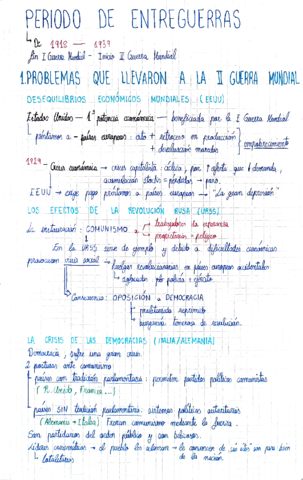 PERIODO DE ENTREGUERRAS
↳ De 1918 — 1939
fin I Guerra Mundial - Inicio II Guerra Mundial
1.PROBLEMAS QUE LLEVARON A LA II GUERRA MUNDIAL
DESEQUILIBRIOS ECONÓMICOS MUNDIALES (EEUU)
Estados Unidos — 1ª potencia económica — beneficiada por la I Guerra Mundial
préstamos a - países europeos: alto + retroceso en producción
+ devaluación moneda
empobrecimiento
1929 — Crisis económica → crisis capitalista cíclica, por ↑ oferta que ↓ demanda,
acumulación stocks = pérdidas → paro.
EEUU → exige pago préstamos a países europeos — "La gran depresión"
LOS EFECTOS DE LA REVOLUCIÓN RUSA (URSS)
La instauración: COMUNISMO a
trabajadores da esperanza
propietarios = peligro
En la URSS sirve de ejemplo y debido a dificultades económicas
provocaron crisis social → huelgas revolucionarias en países europeos occidentales
↳ aplacadas por policía + ejército
Consecuencia: OPOSICIÓN a DEMOCRACIA
↳ proletariado reprimido
burguesía temerosa de revolución.
LA CRISIS DE LAS DEMOCRACIAS (ITALIA/ALEMANIA)
Democracia, sufre una gran crisis.
2 posturas ante comunismo
países con tradición parlamentaria: permiten partidos políticos comunistas
(R. Unido, Francia...)
países SIN tradición parlamentaria: sistemas políticos autoritarios
(Alemania e Italia) Frenan comunismo mediante la fuerza.
Son partidarios del orden público y son belicosos.
Líderes carismáticos → el pueblo los aclaman → le convencen de que ellos son para bien
↳ totalitarios
de la nación